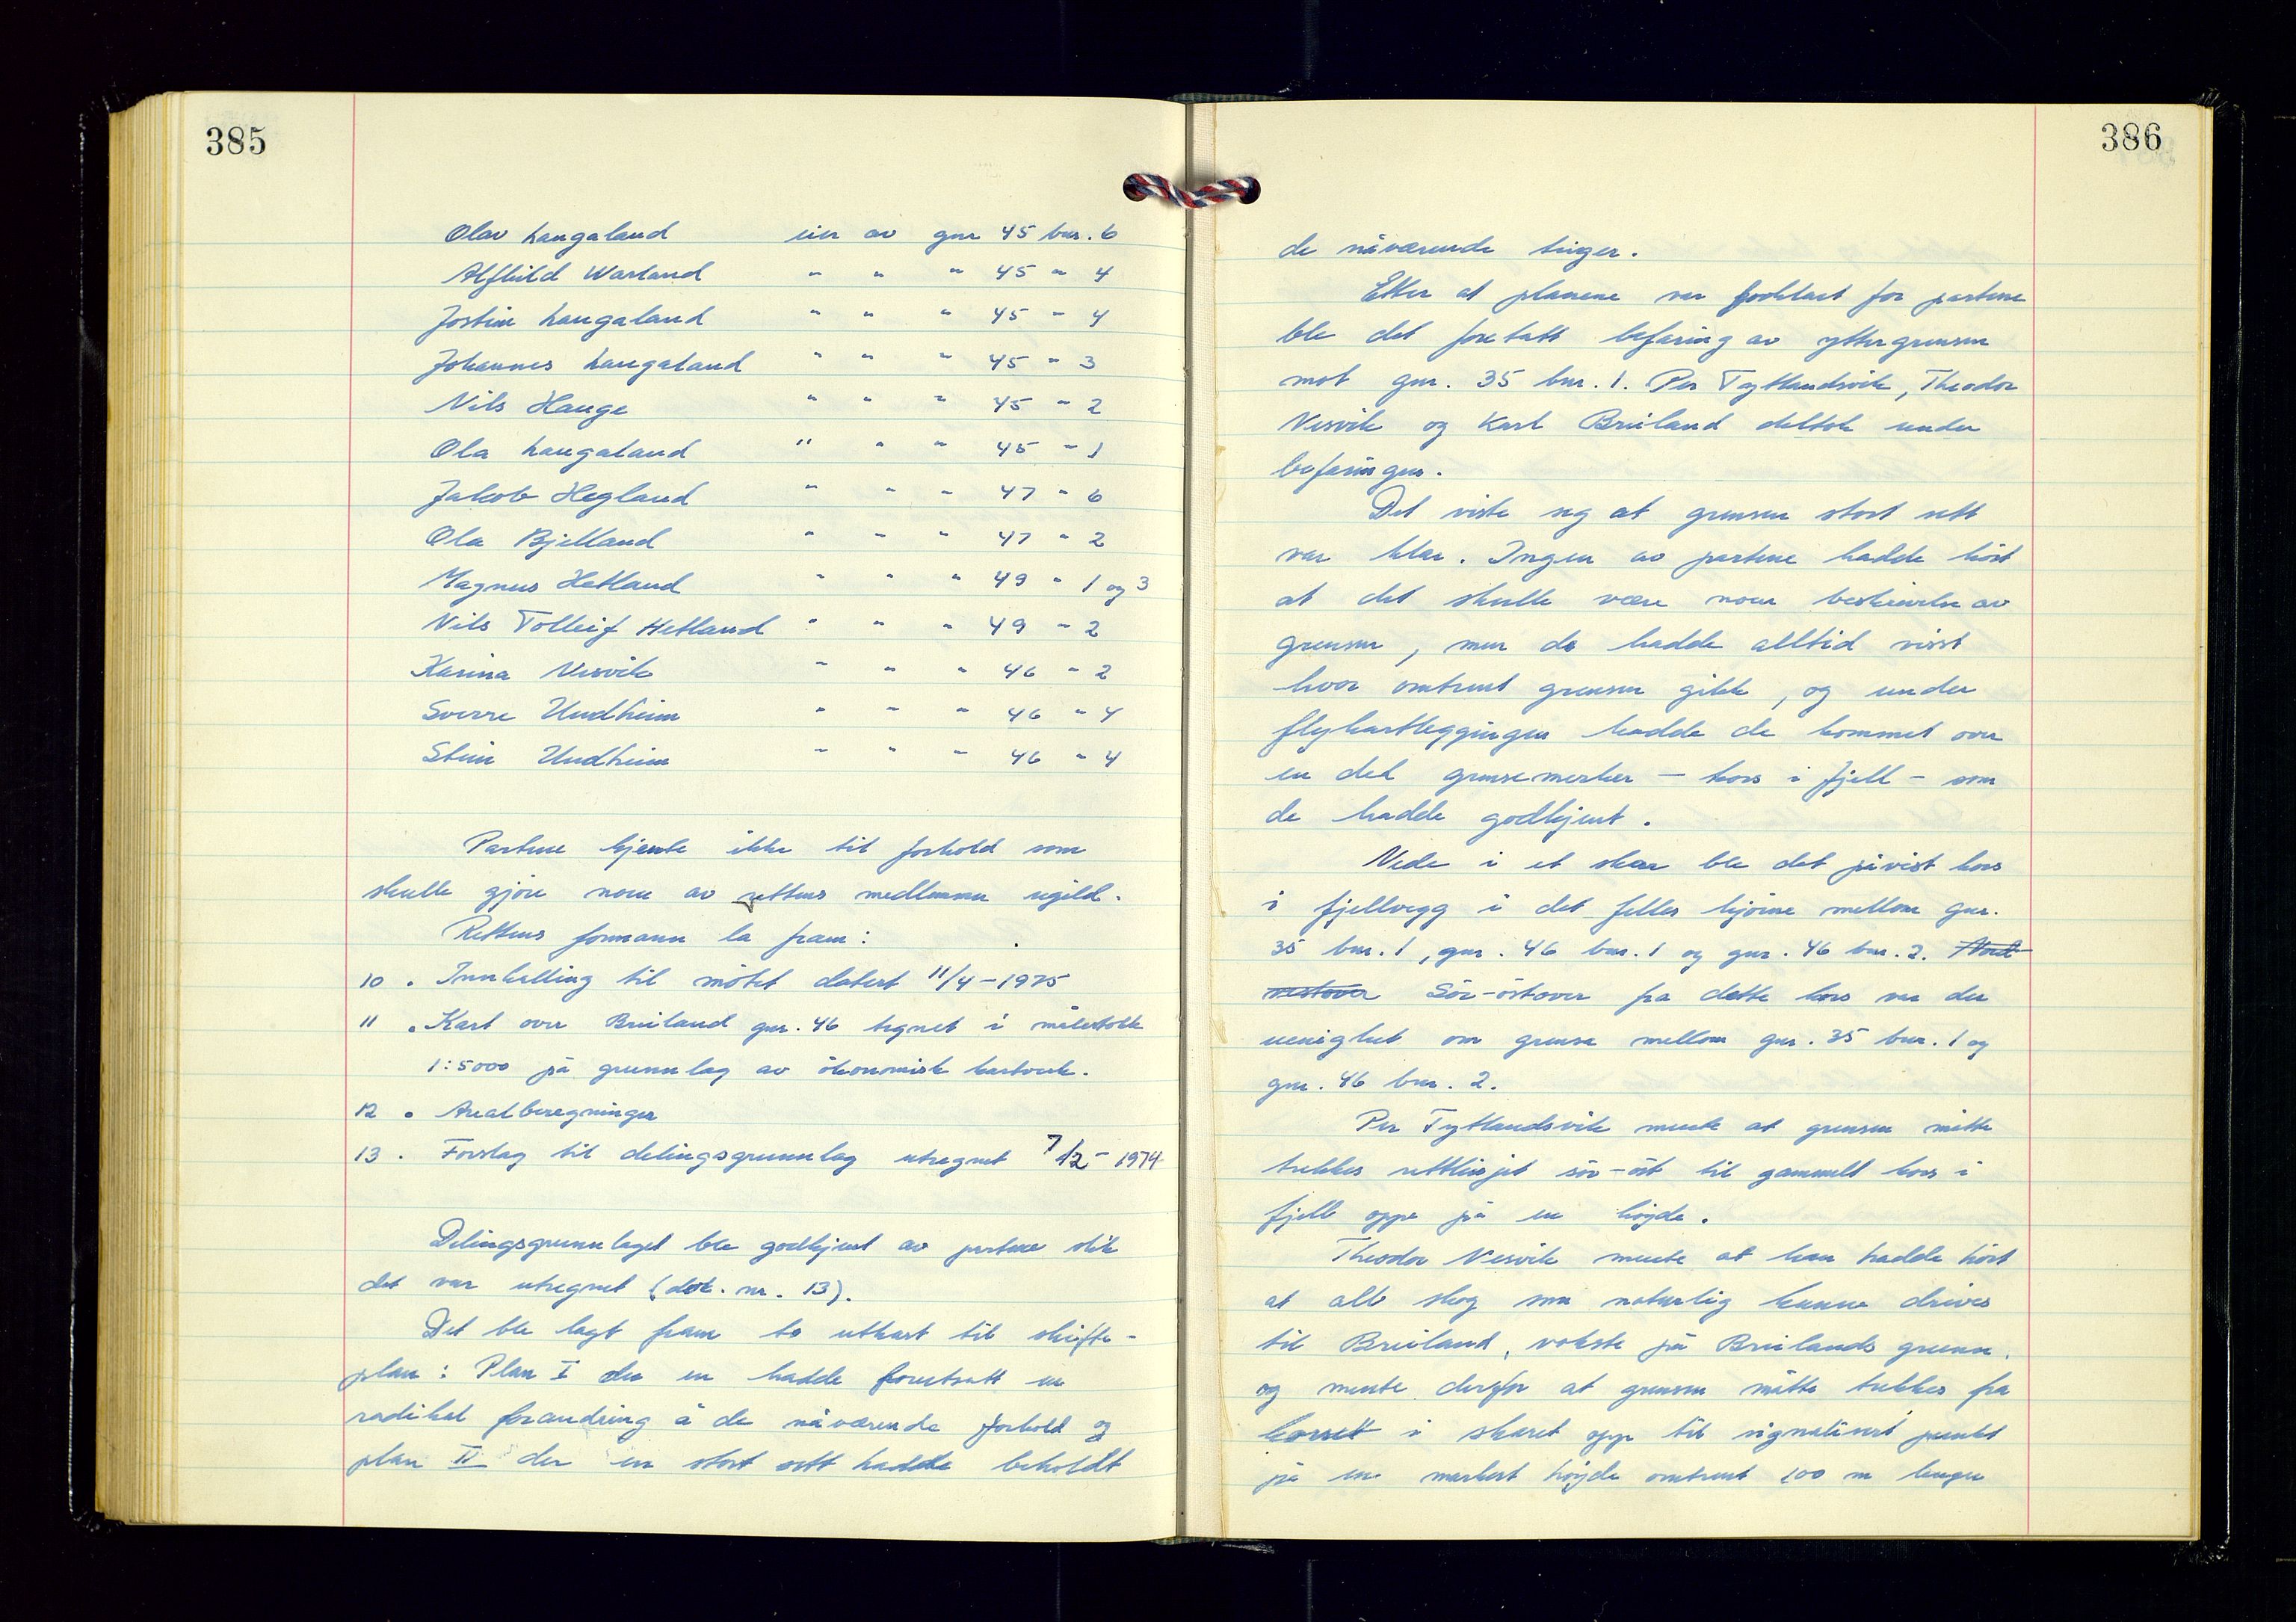 385
Olav Langaland eier av gnr 45 bnr. 6
Alfhild Warland " " " 45 " 4
Jostein Langaland " " " 45 " 4
Johannes Langaland " " " 45 " 3
Nils Hauge " " " 45 " 2
Ola Langaland " " " 45 " 1
Jakob Hegland " " " 47 " 6
Ola Bjelland " " " 47 " 2
Magnus Hetland " " " 49 " 1 og 3
Nils Tolleif Hetland " " " 49 " 2
Karina Nesvik " " " 46 " 2
Sverre Undheim " " " 46 " 4
Stein Undheim " " " 46 " 4
Partene kjente ikke til forhold som
skulle gjöre noen av rettens medlemmer ugild.
Rettens formann la fram:
10 . Innkalling til mötet datert 11/4-1975
11 . Kart over Breiland gnr. 46 tegnet i målestokk
1:5000 på grunnlag av ökonomisk kartverk.
12 . Arealberegninger
13 . Forslag til delingsgrunnlag utregnet 7/12-1974
Delingsgrunnlaget ble godkjent av partene slik
det var utregnet (dok. nr. 13).
Det ble lagt fram to utkast til skifte-
plan: Plan I der en hadde foretatt en
radikal forandring å de nåværende forhold og
plan II der en stort sett hadde beholdt
386
de nåværende teiger.
Etter at planene var forklart for partene
ble det foretatt befaring av yttergrensen
mot gnr. 35 bnr. 1. Per Tytlandsvik, Theodor
Nesvik og Karl Breiland deltok under
befaringen.
Det viste seg at grensen stort sett
var klar. Ingen av partene hadde hört
at det skulle være noen beskrivelse av
grensen, men de hadde alltid visst
hvor omtrent grensen gikk, og under
flykartleggingen hadde de kommet over
en del grensemerker - kors i fjell - som
de hadde godkjent.
Nede i et skar ble det påvist kors
i fjellvegg i det felles hjörne mellom gnr.
35 bnr. 1, gnr. 46 bnr. 1 og gnr. 46 bnr. 2. Nord
vestover Sör-östover fra dette kors var der
uenighet om grensa mellom gnr. 35 bnr. 1 og
gnr. 46 bnr. 2.
Per Tytlandsvik mente at grensen måtte
trekkes rettlinjet sör-öst til gammelt kors i
fjell oppe på en höyde.
Theodor Nesvik mente at han hadde hört
at all skog som naturlig kunne drives
til Breiland, vokste på Breilands grunn,
og mente derfor at grensen måtte trekkes fra
korset i skaret opp til signalisert punkt
på en markert höyde omtrent 100 m lenger